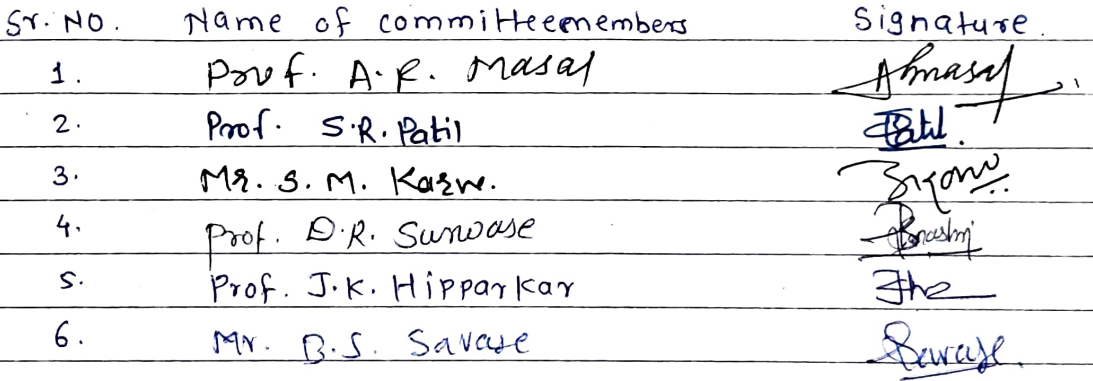 Sr. NO. Name of committeemembers Signature.
1. Prof. A. R. Masal Ahmasal
2. Prof. S.R. Patil Patil.
3. Mr. S. M. Karve.
4. Prof. D.R. Surwase
5. Prof. J.K. Hipparkar
6. Mr. B.S. Savase Savase.